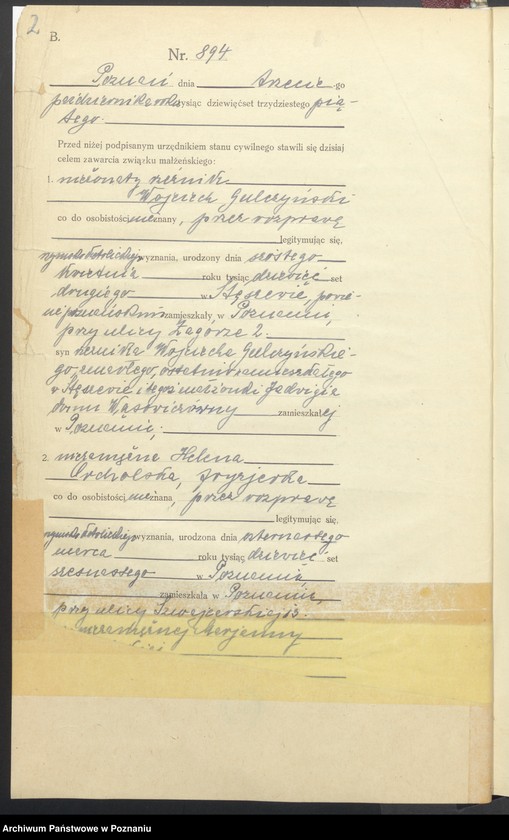 2
B.
Nr. 894
Poznań dnia trzeciego
października roku tysiąc dziewięćset trzydziestego pią-
tego.
Przed niżej podpisanym urzędnikiem stanu cywilnego stawili się dzisiaj
celem zawarcia związku małżeńskiego:
1. nieżonaty
Wojciech Gulczyński
co do osobistości nieznany, przez rozprawę
legitymując się,
rzymskokatolickiego wyznania, urodzony dnia szóstego
kwietnia roku tysiąc dziewięćset
drugiego w Stęszewie, powie-
cie poznańskim zamieszkały w Poznaniu,
przy ulicy Zagórze 2.
syn Wojciecha Gulczyńskie-
go, zmarłego, ostatnio zamieszkałego
w Stęszewie i tegoż małżonki Jadwigi z
domu zamieszkałej
w Poznaniu;
2. niezamężna Helena
fryzjerka
co do osobistości nieznana, przez rozprawę
legitymując się,
rzymskokatolickiego wyznania, urodzona dnia czternastego
marca roku tysiąc dziewięćset
szesnastego w Poznaniu,
zamieszkała w Poznaniu,
przy ulicy Szwajcarskiej 13.
niezamężnej Marjanny
Archiwum Państwowe w Poznaniu